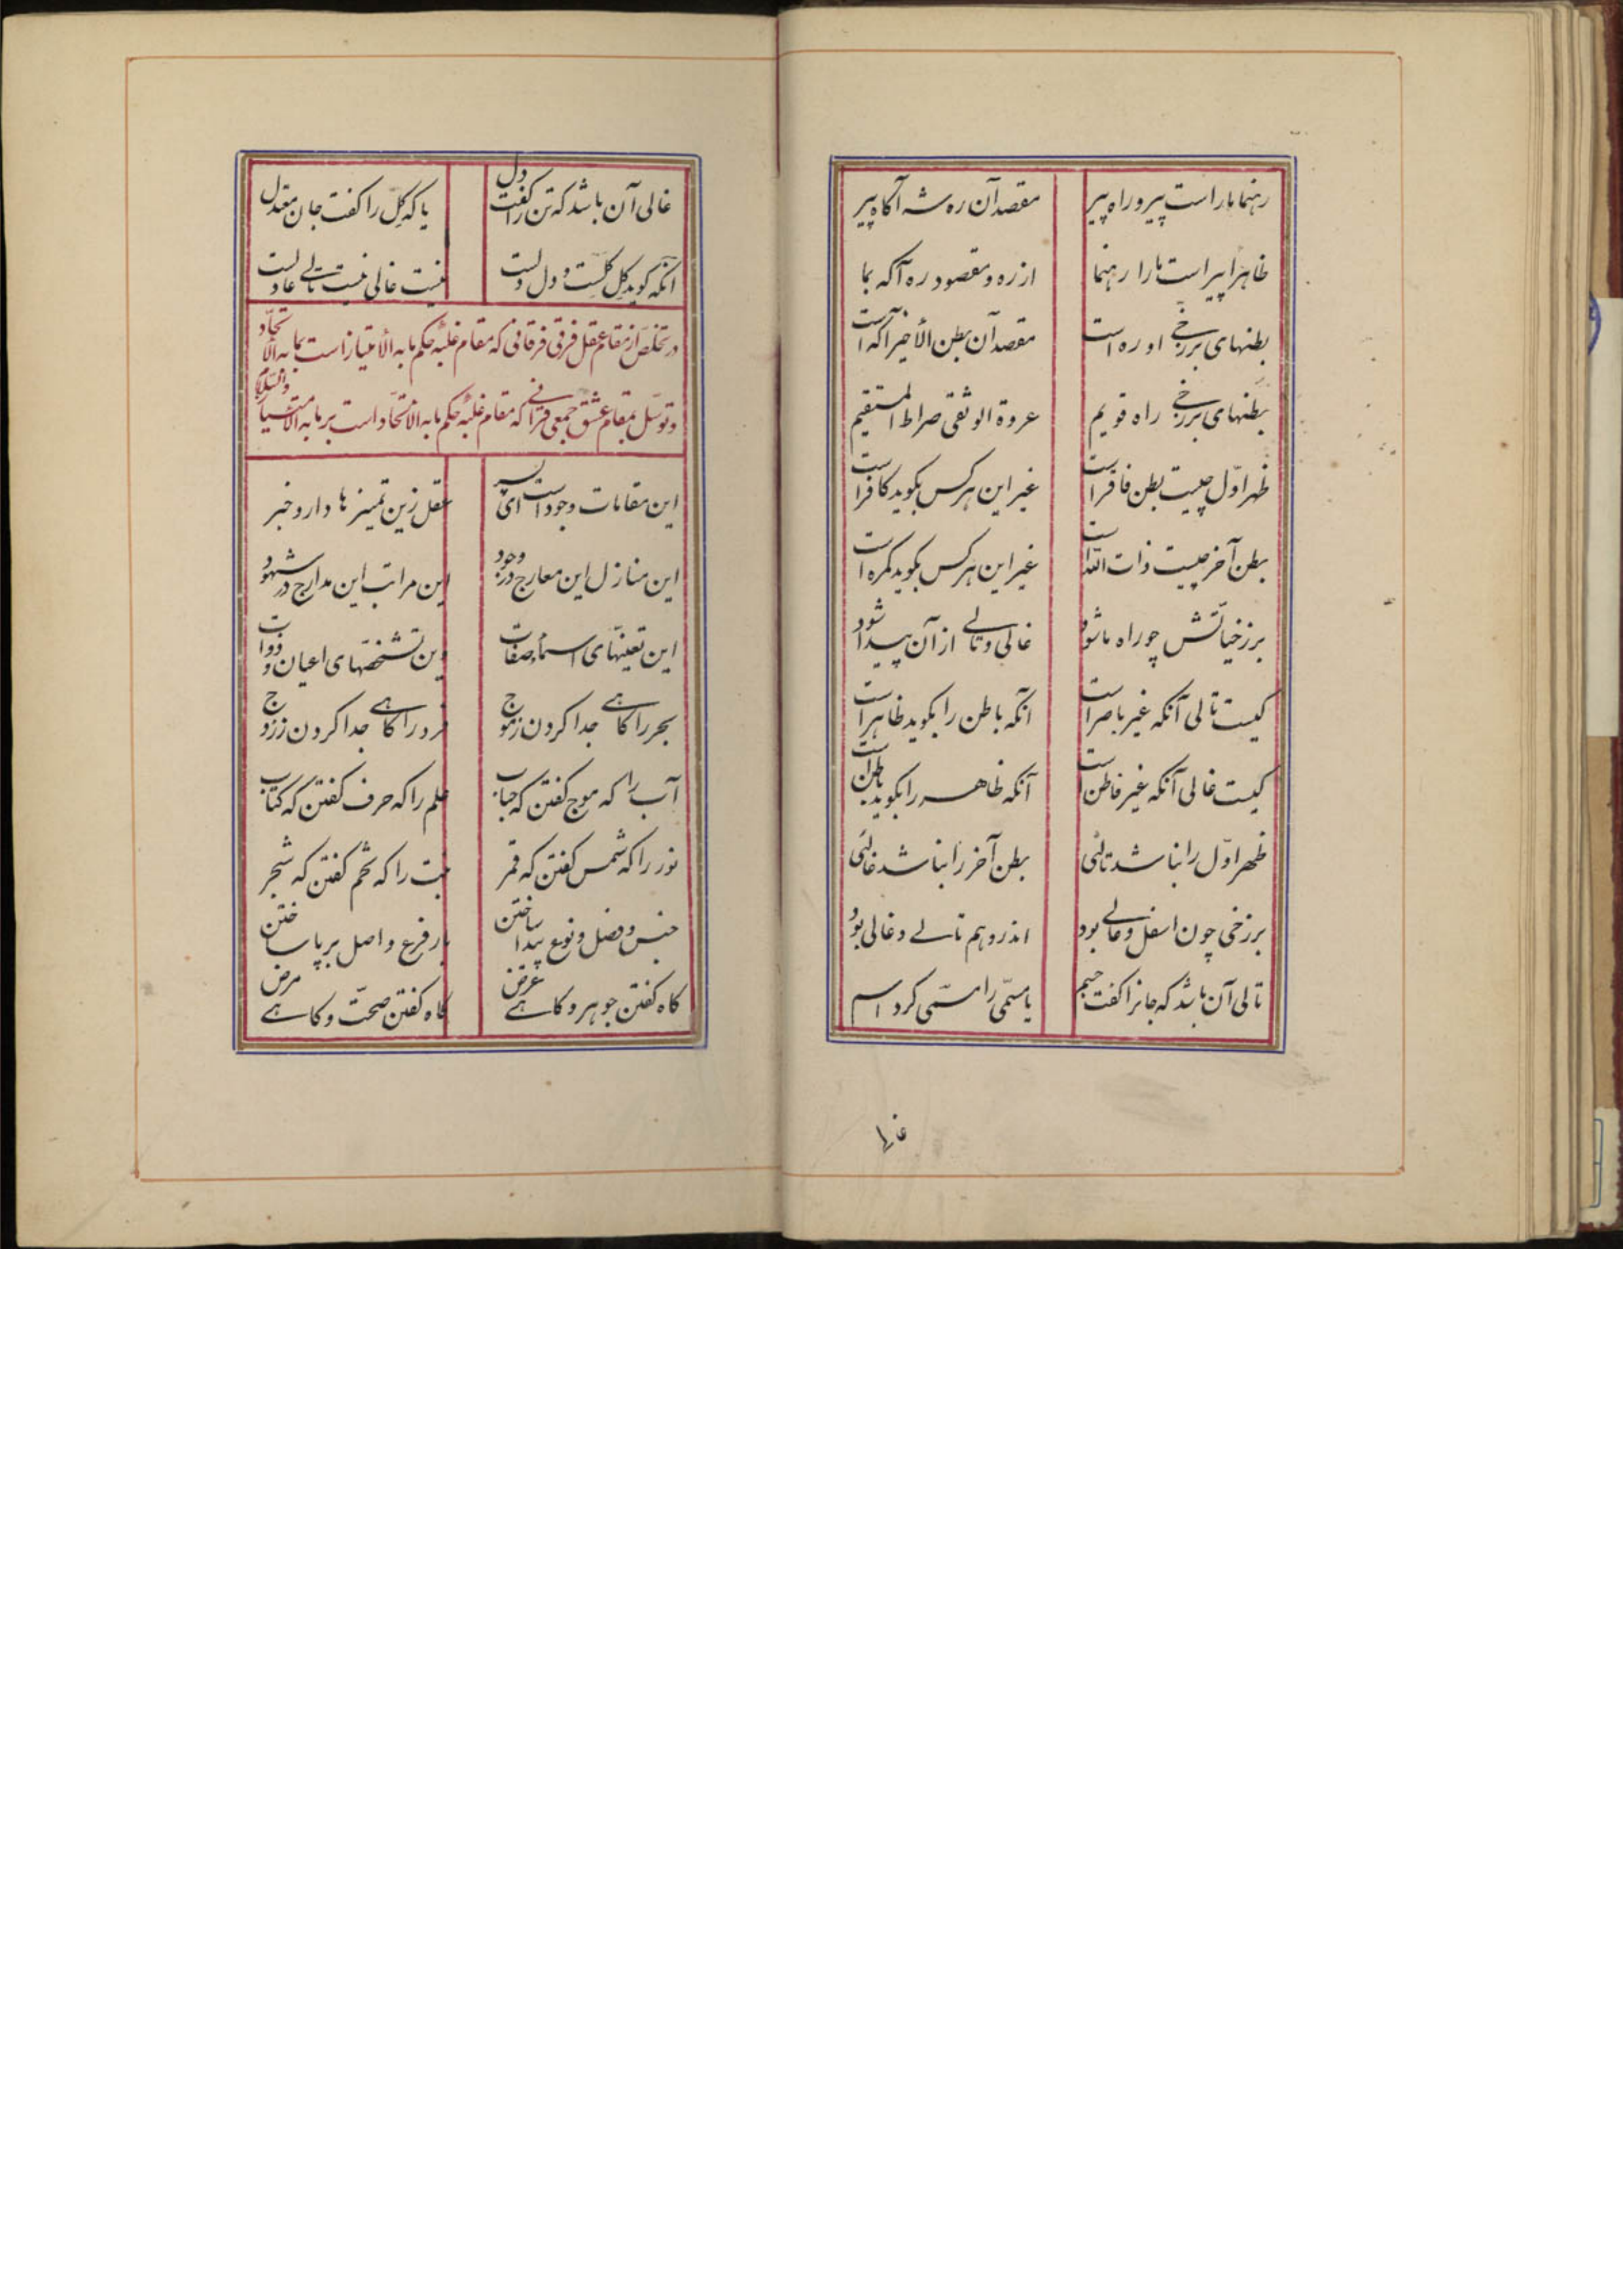 رهنما ما راست پیر و راه پیر مقصد آن ره شه آگاه پیر
ظاهراً پیر است ما را رهنما از ره و مقصود ره آگه بما
بطنهای برزخی او ره است مقصد آن بطن الأخیر آگه است
بطنهای برزخی راه قویم عروة الوثقی صراط المستقیم
ظهر اوّل چیست بطن فاقر است غیر این هر کس بگوید کافر است
بطن آخر چیست ذات الله است غیر این هر کس بگوید گمره است
برزخیاتش چو راه ما شود غالی و تالی از آن پیدا شود
کیست تالی آنکه غیر باصر است آنکه باطن را بگوید ظاهر است
کیست غالی آنکه غیر فاطن است آنکه ظاهر را بگوید باطن است
ظهر اوّل را نباشد تالئی بطن آخر را نباشد غالئی
برزخی چون اسفل و عالی بود اندرو هم تالی و غالی بود
تالی آن باشد که جانرا گفت جسم یا مسمّی را مسمّی کرد اسم
غالی
غالی آن باشد که تن را گفت دل یا که گِل را گفت جان معتدل
آنکه گوید گِل گِلست و دل دلست نیست غالی نیست تالی عادلست
در تخلّص از مقام عقل فرقی فرقانی که مقام غلبهٔ حکم ما به الأمتیاز است بما به الأتحّاد
و توسّل بمقام عشق جمعی قرآنی که مقام غلبهٔ حکم ما به الاتحّاد است بر ما به الامتیاز والسّلام
این مقامات وجود است ای پسر عقل زین تمییزها دارد خبر
این منازل این معارج در وجود این مراتب این مدارج در شهود
این تعیّنهای اسماء و صفات این تشخصّهای اعیان و ذوات
بحر را گاهی جدا کردن ز موج فرد را گاهی جدا کردن ز زوج
آب را که موج گفتن که حباب علم را که حرف گفتن که کتاب
نور را که شمس گفتن که قمر حبّت را که تخم گفتن که شجر
جنس و فصل و نوع پیدا ساختن بار فرع و اصل بر پا ساختن
گاه گفتن جوهر و گاهی عرض گاه گفتن صحّت و گاهی مرض